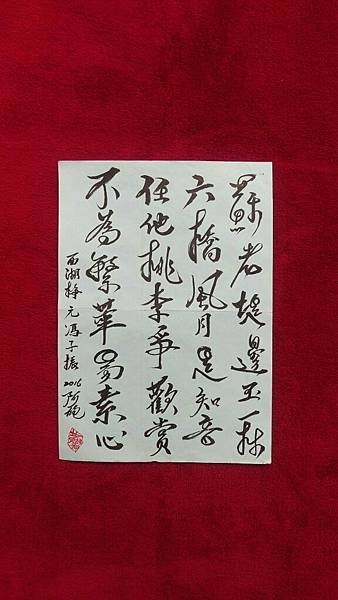 蘇老堤邊玉一林
六橋風月是知音
任他桃李爭歡賞
不為繁華易素心
西湖梅 元 馮子振 2016 阿